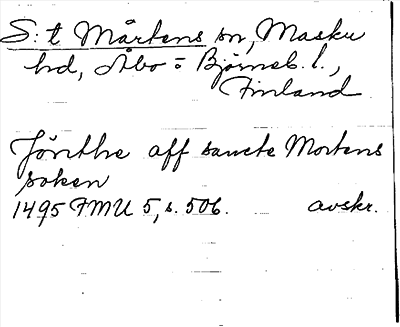 S:t Mårtens sn, Masku
hd, Åbo = Björneb. l.,
Finland
Jönthe aff sancte Mortens
soken
1495 FMU 5, s. 506. avskr.